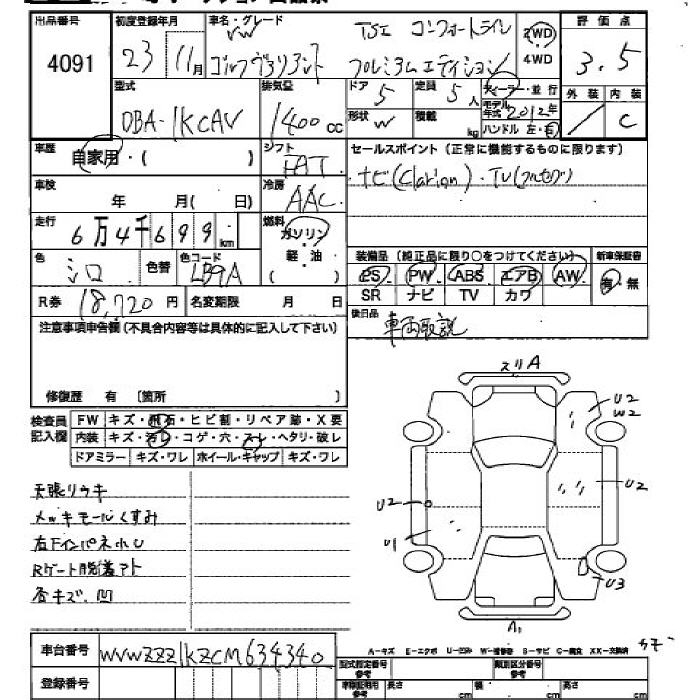 出品番号 初度登録年月 車名・グレード 評価点
4091 23 11月 VW ゴルフヴァリアント TSI コンフォートライン プレミアムエディション 2WD 4WD 3.5
型式 排気量 ドア 定員 ディーラー・並行 外装 内装
DBA-1KCAV 1400cc 5 5人 モデル年式 2012年 C
形状 W 積載 kg ハンドル 左・右
車歴 自家用・( ) シフト FAT セールスポイント(正常に機能するものに限ります)
車検 年 月( 日) 冷房 AAC ナビ(Clarion)・TV(フルセグ)
走行 6万4千699km 燃料 ガソリン
軽・油
色 シロ 色替 色コード LB9A ( ) 装備品(純正品に限り○をつけてください) 新車保証書
PS PW ABS エアB AW 有・無
R券 18,720円 名変期限 月 日 SR ナビ TV カワ
注意事項申告欄(不具合内容等は具体的に記入して下さい) 後日品 車両取説
修復歴 有 〔箇所 〕
検査員記入欄 FW キズ・飛石・ヒビ割・リペア跡・X要
内装 キズ・汚レ・コゲ・穴・スレ・ヘタリ・破レ
ドアミラー キズ・ワレ ホイール・キャップ キズ・ワレ
スリA
U2
W2
U2
U2
U1
U3
A1
天張リウキ
メッキモールくすみ
右FインパネホU
Rゲート脱着アト
各キズ、凹
A-キズ E-エクボ U-凹み W-補修あと S-サビ C-腐食 XX-交換済
車台番号 WVWZZZ1KZCM634340
型式指定番号 参考 類別区分番号 参考
登録番号 車検証明用 参考 長さ cm 幅 cm 高さ cm